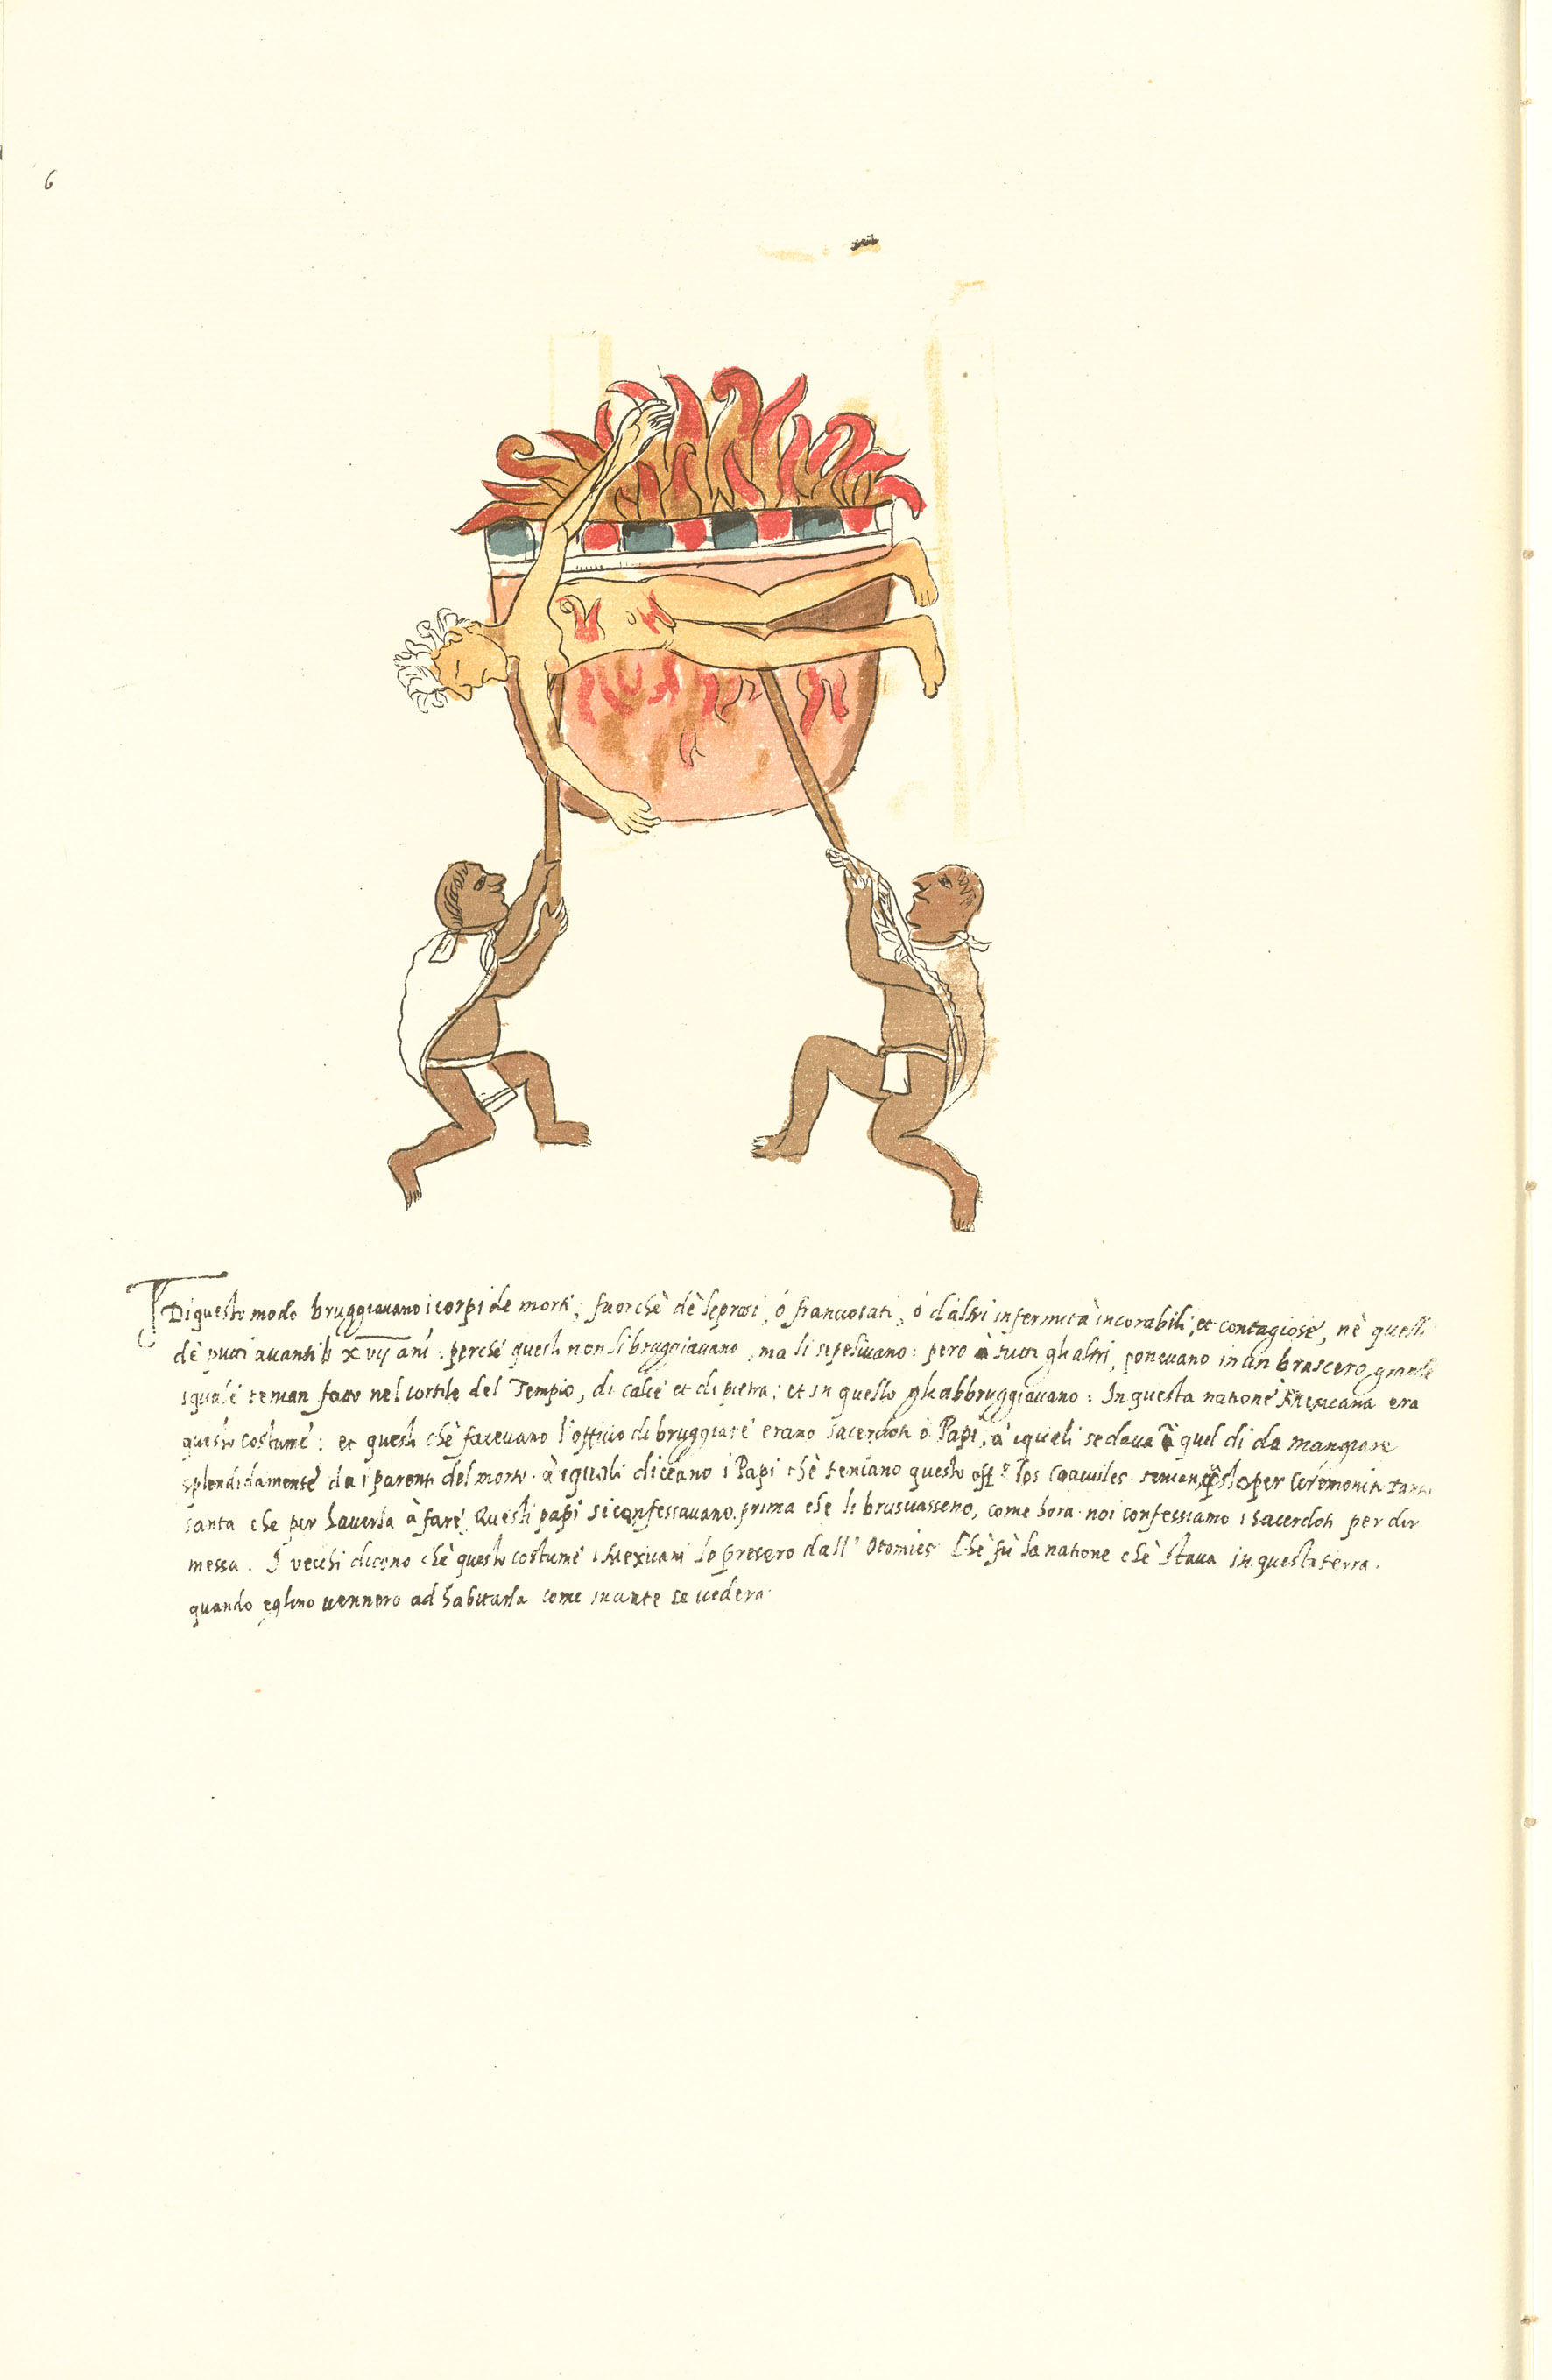 6
Di questo modo bruggiauano i corpi de morti; fuorchè dè leprosi, ó franciosati, ó d'altri infermità incorabili, et contagiose, nè quelli
dè putti auanti li xvij anì: perchè questi non li bruggiauano, ma li sepeliuano: però à tutti gli altri, poneuano in un brascero grande
i quale tenian fatto nel cortile del Tempio, di calce et di pietra; et in quello gli abbruggiauano: In questa natione Mexicana era
questo costume: et questi chè faceuano l'officio di bruggiare erano sacerdoti ò Papi, à i quali se daua à quel dì da mangiare
splendidamente da i parenti del morto. à i quali diceano i Papi chè teniano questo offº. los tenian per Ceremonia tanto
santa che per hauerla à fare, Questi papi si confessauano. prima che li brusciasseno, come hora noi confessiamo i sacerdoti per dir
messa. I vecchi dicono chè questo costume i Mexicani lo presero dall' Otomies Chè fù la natione chè staua in questa terra.
quando eglino uennero ad habitarla come inante se uedera